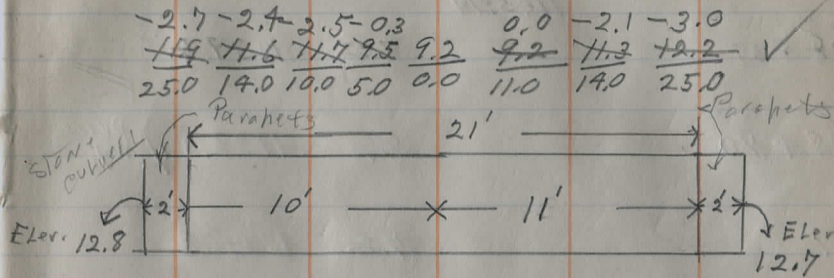 -2.7 -2.4 -2.5 -0.3 0.0 -2.1 -3.0
11.9 11.6 11.7 9.5 9.2 9.2 11.3 12.2
25.0 14.0 10.0 5.0 0.0 11.0 14.0 25.0
Parapets Parapets
21'
Stone
culvert
2' 10' 11' 2'
Elev. 12.8 Elev
12.7